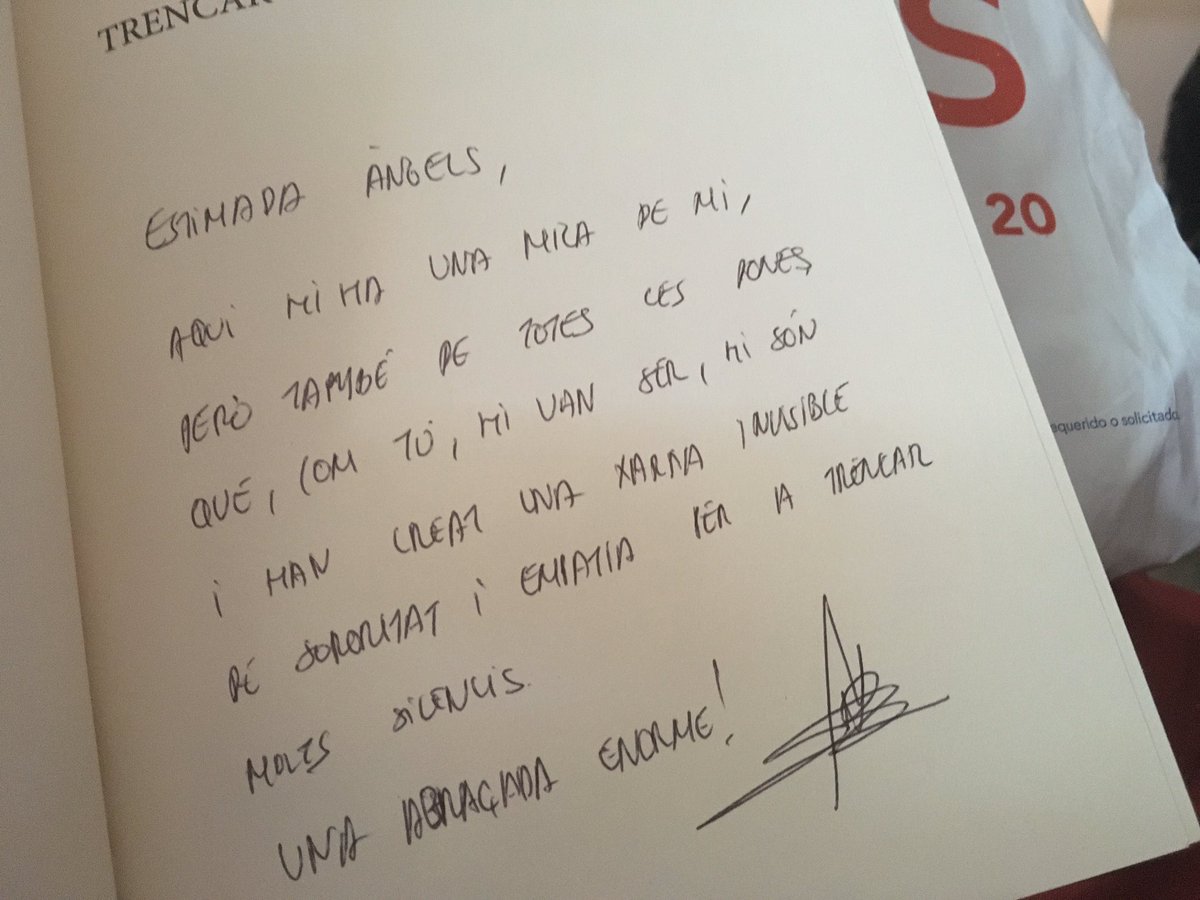 TRENCAR
ESTIMADA ÀNGELS,
AQUI HI HA UNA MICA DE MI,
PERÒ TAMBÉ DE TOTES LES DONES
QUE, COM TÚ, HI VAN SER, HI SÓN
I HAN CREAT UNA XARXA INVISIBLE
DE SORORITAT I EMPATIA PER A TRENCAR
MOLTS SILENCIS.
UNA ABRAÇADA ENORME!
S
20
equerido o solicitado